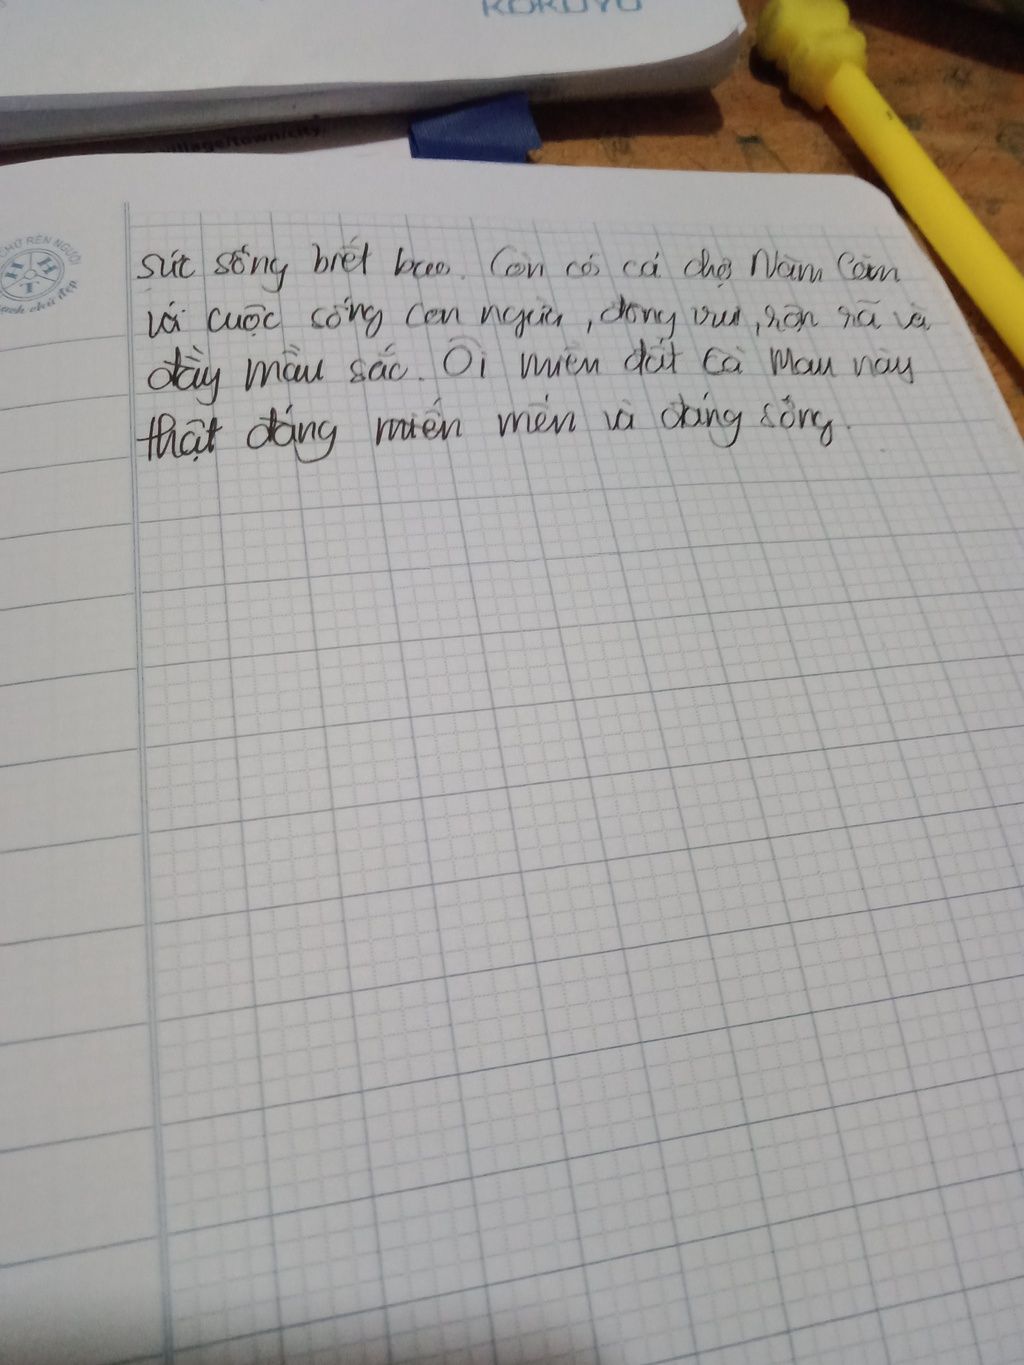 KOKUYO
village/town/city:
CHỮ RÈN NGƯỜI
HHT
sức sống biết bao. Còn có cả chợ Năm Căn
với cuộc sống con người, đông vui, rộn rã và
đầy mầu sắc. Ôi miền đất Cà Mau này
thật đáng miến mến và đáng sống.